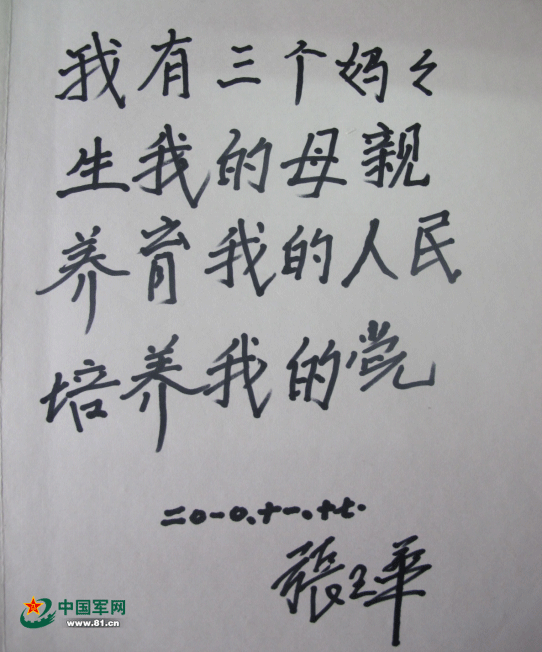 我有三个妈々
生我的母親
养育我的人民
培养我的党
二〇一〇.十一.十七.
張玉华
中国军网
www.81.cn